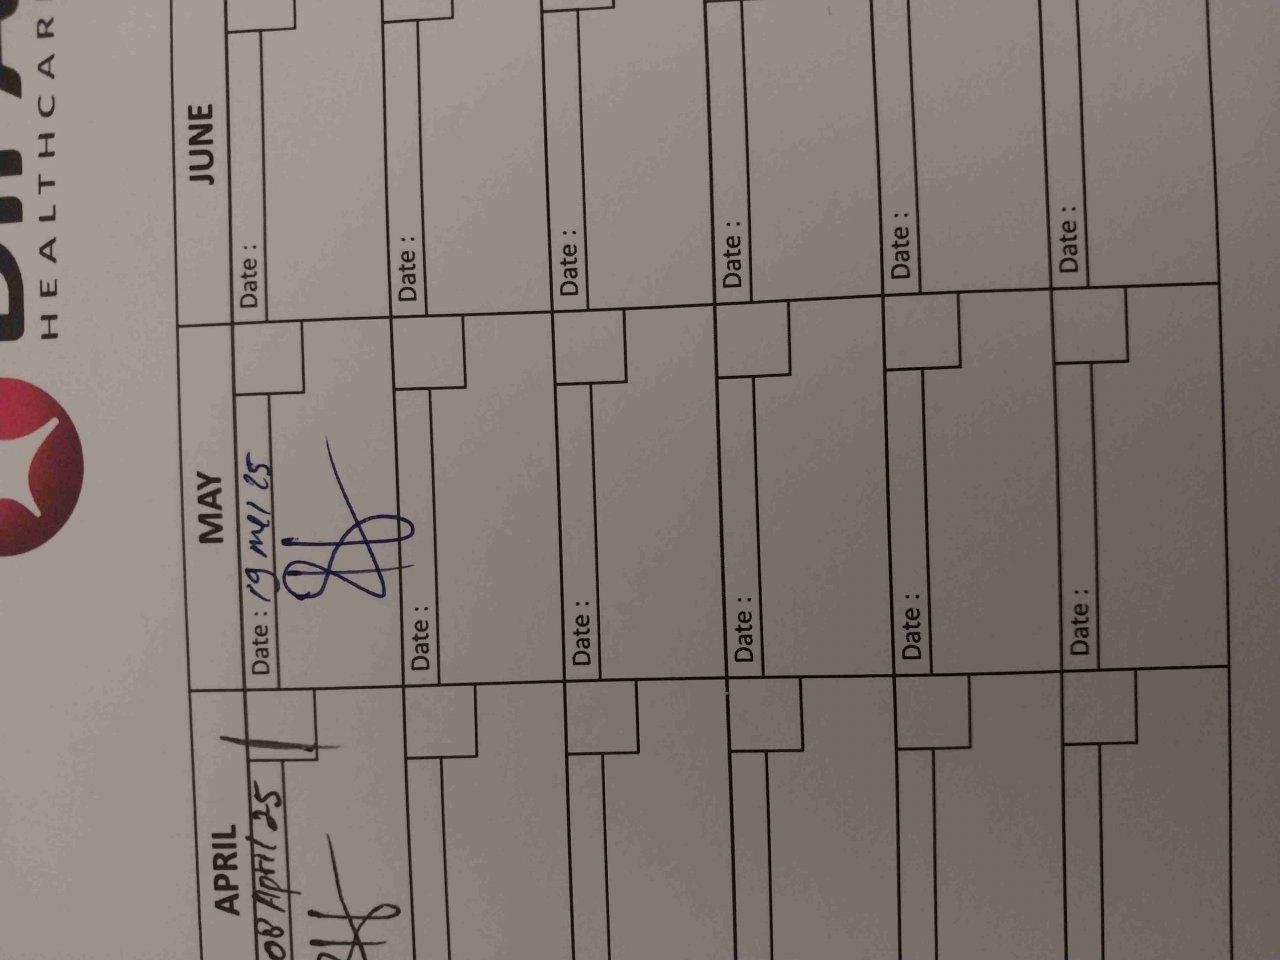 HEALTHCAR
APRIL MAY JUNE
08 April 25 Date : 19 Mei 25 Date :
Date : Date :
Date : Date :
Date : Date :
Date : Date :
Date : Date :